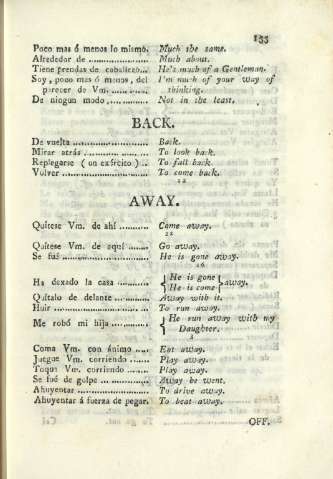 155
Poco mas ó menos lo mismo. Much the same.
Alrededor de .................... Much about.
Tiene prendas de caballero... He's much of a Gentleman.
Soy, poco mas ó menos, del I'm much of your way of
parecer de Vm. ............. thinking.
De ningun modo ............. Not in the least.
BACK.
De vuelta ........................ Back.
Mirar atrás .................... To look back.
Replegarse ( un exército ) .. To fall back.
Volver ........................... To come back.
12
AWAY.
Quítese Vm. de ahí ........... Come away.
12
Quítese Vm. de aquí ....... Go away.
Se fué ........................... He is gone away.
16
Ha dexado la casa ........... { He is gone
He is come } away.
Quítalo de delante ........... Away with it.
Huir .............................. To run away.
Me robó mi hija ............. { He run away with my
Daughter.
1
Coma Vm. con ánimo ..... Eat away.
Juegue Vm. corriendo ...... Play away.
Toque Vm. corriendo ...... Play away.
Se fué de golpe ............... Away he went.
Ahuyentar ..................... To drive away.
Ahuyentar á fuerza de pegar. To beat away.
OFF.